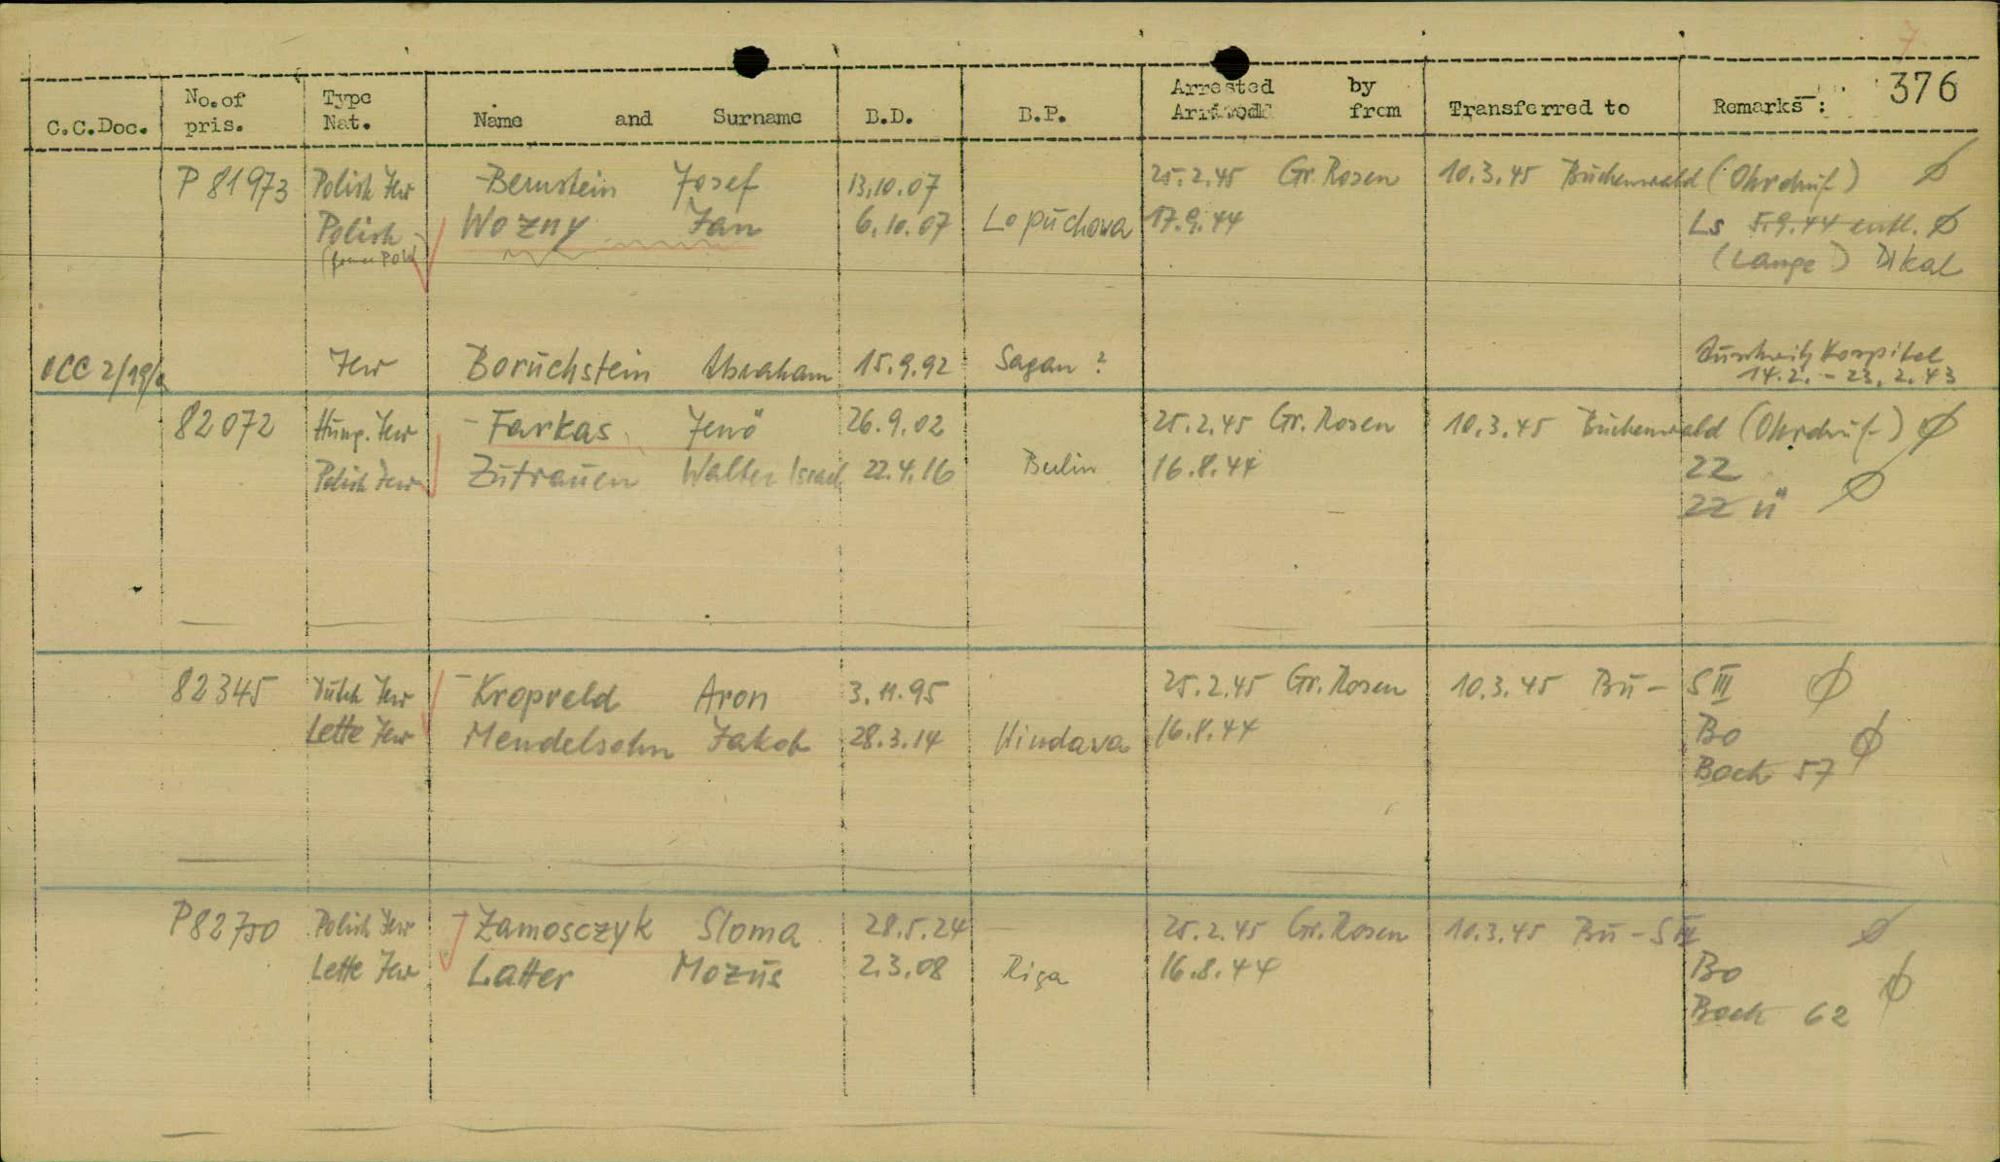 7
376
C.C.Doc. No.of pris. Type Nat. Name and Surname B.D. B.P. Arrested by from Transferred to Remarks :
P 81973 Polish Jew - Bernstein Josef 13.10.07 25.2.45 Gr. Rosen 10.3.45 Buchenwald (Ohrdruf) Ø
Polish Wozny Jan 6.10.07 Lopuchowa 17.9.44 Ls 5.9.44 entl. Ø
(Lange)
OCC 2/19/ Jew Boruchstein Abraham 15.9.92 Sagan ? Auschwitz Hospital
14.2. - 23.2.43
82072 Hung. Jew - Farkas Jenö 26.9.02 25.2.45 Gr. Rosen 10.3.45 Buchenwald (Ohrdruf) Ø
Polish Jew Zutrauen Walter Israel 22.4.16 Berlin 16.8.44 22
22 ü Ø
82345 Dutch Jew - Kropveld Aron 3.11.95 25.2.45 Gr. Rosen 10.3.45 Bu - S III Ø
Lette Jew Mendelsohn Jakob 28.3.14 16.8.44 Bo Ø
Boch 57
P 82750 Polish Jew Zamosczyk Sloma 28.5.24 25.2.45 Gr. Rosen 10.3.45 Bu - S III Ø
Lette Jew Latter Mozus 2.3.08 Riga 16.8.44 Bo Ø
Boch 62